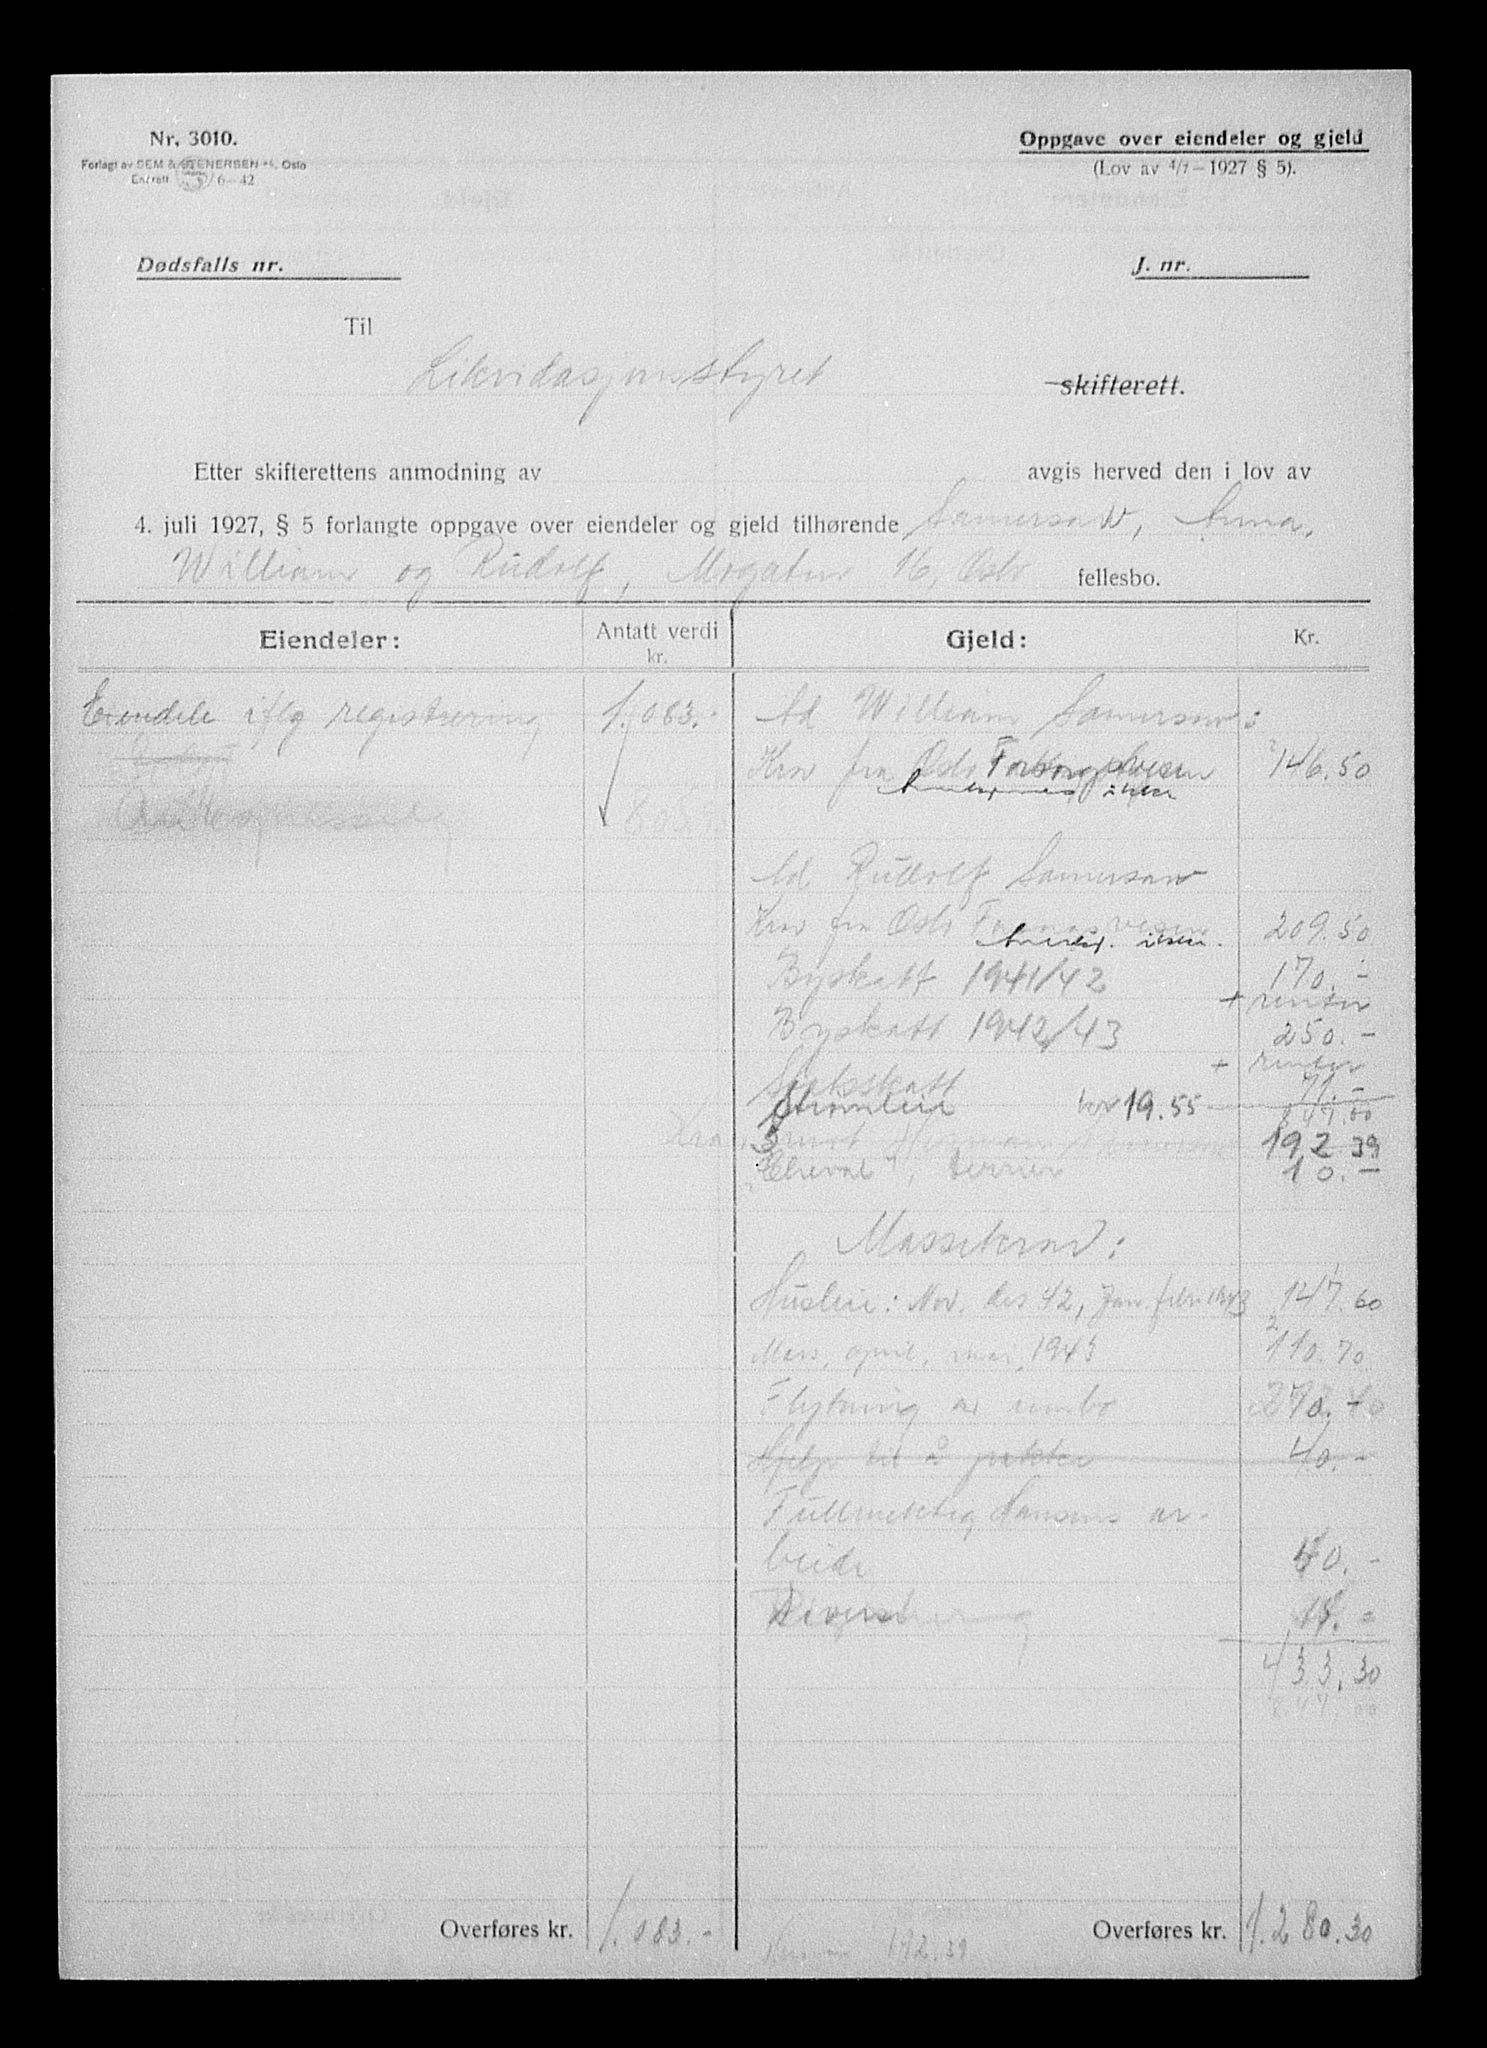 Nr. 3010.
Forlagt av SEM & STENERSEN A/S, Oslo
Enerett 6—42
Oppgave over eiendeler og gjeld
(Lov av 4/7 — 1927 § 5).
Dødsfalls nr.
J. nr.
Til
Likvidasjonsstyret
skifterett.
Etter skifterettens anmodning av
avgis herved den i lov av
4. juli 1927, § 5 forlangte oppgave over eiendeler og gjeld tilhørende Samersaw, Anna,
William og Rudolf, Mogaten 16, Oslo fellesbo.
Eiendeler: Antatt verdi kr. Gjeld: Kr.
Eiendele iflg registrering 1.083.-
Ad William Samersaw:
Krav fra Oslo 146.50
Ad Rudolf Samersaw
Krav fra Oslo 209.50
Byskatt 1941/42 170.-
+ renter
Byskatt 1942/43 250.-
+ renter
Statsskatt 71.-
Strømleie kr 19.55
192 39
terrier 10.-
Massekrav:
Husleie: Nov. des 42, Jan. febr 1943 147.60
Mars, april, mai, 1943 110.70
Flytning av innbo
Hjelp til å pakke 40.-
Fullmektig Hansens ar-
beide 40.-
Registrering
433.30
Overføres kr. 1.083.-
Herman 192.39
Overføres kr. 1.280.30